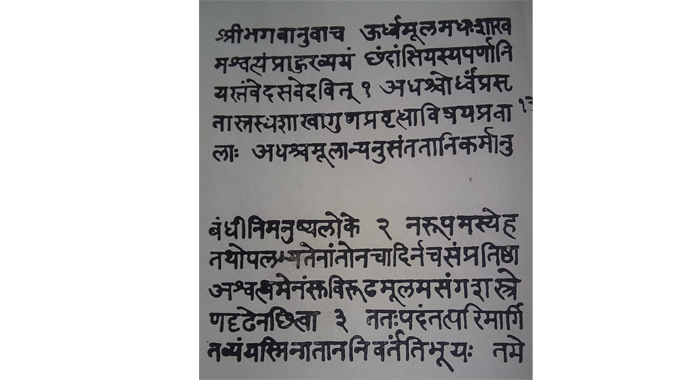 श्रीभगवानुवाच ऊर्ध्वमूलमधःशाख
मश्वत्थंप्राहुरव्ययं छंदांसियस्यपर्णानि
यस्तंवेदसवेदवित् १ अधश्चोर्ध्वंप्रसृ
तास्तस्यशाखागुणप्रवृद्धाविषयप्रवा
लाः अधश्चमूलान्यनुसंततानिकर्मानु
बंधीनिमनुष्यलोके २ नरूपमस्येह
तथोपलभ्यतेनांतोनचादिर्नचसंप्रतिष्ठा
अश्वत्थमेनंसुविरूढमूलमसंगशस्त्रे
णदृढेनछित्वा ३ ततःपदंतत्परिमार्गि
तव्यंयस्मिन्गताननिवर्तंतिभूयः तमे